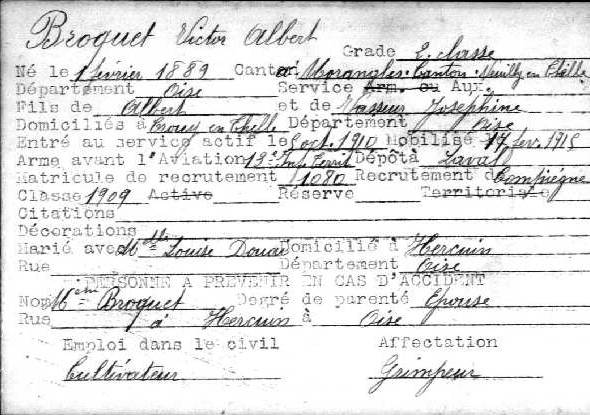 Broquet Victor Albert
Grade 2. classe
Né le 1 février 1889 Canton Morangles. Canton Neuilly en Thelle
Département Oise Service Arm. ou Aux.
Fils de Albert et de Masseur Joséphine
Domiciliés à Crouy en Thelle Département Oise
Entré au service actif le 9 oct. 1910 Mobilisé 19 fev. 1915
Arme avant l'Aviation 13e Inf. Territ. Dépôt à Laval
Matricule de recrutement 1080 Recrutement de Compiègne
Classe 1909 Active Réserve Territoriale
Citations
Décorations
Marié avec Melle Louise Douai Domicilié à Hercuin
Rue Département Oise
PERSONNE A PREVENIR EN CAS D'ACCIDENT
Nom Broquet Degré de parenté Epouse
Rue à Hercuin à Oise
Emploi dans le civil Affectation
Cultivateur Grimpeur